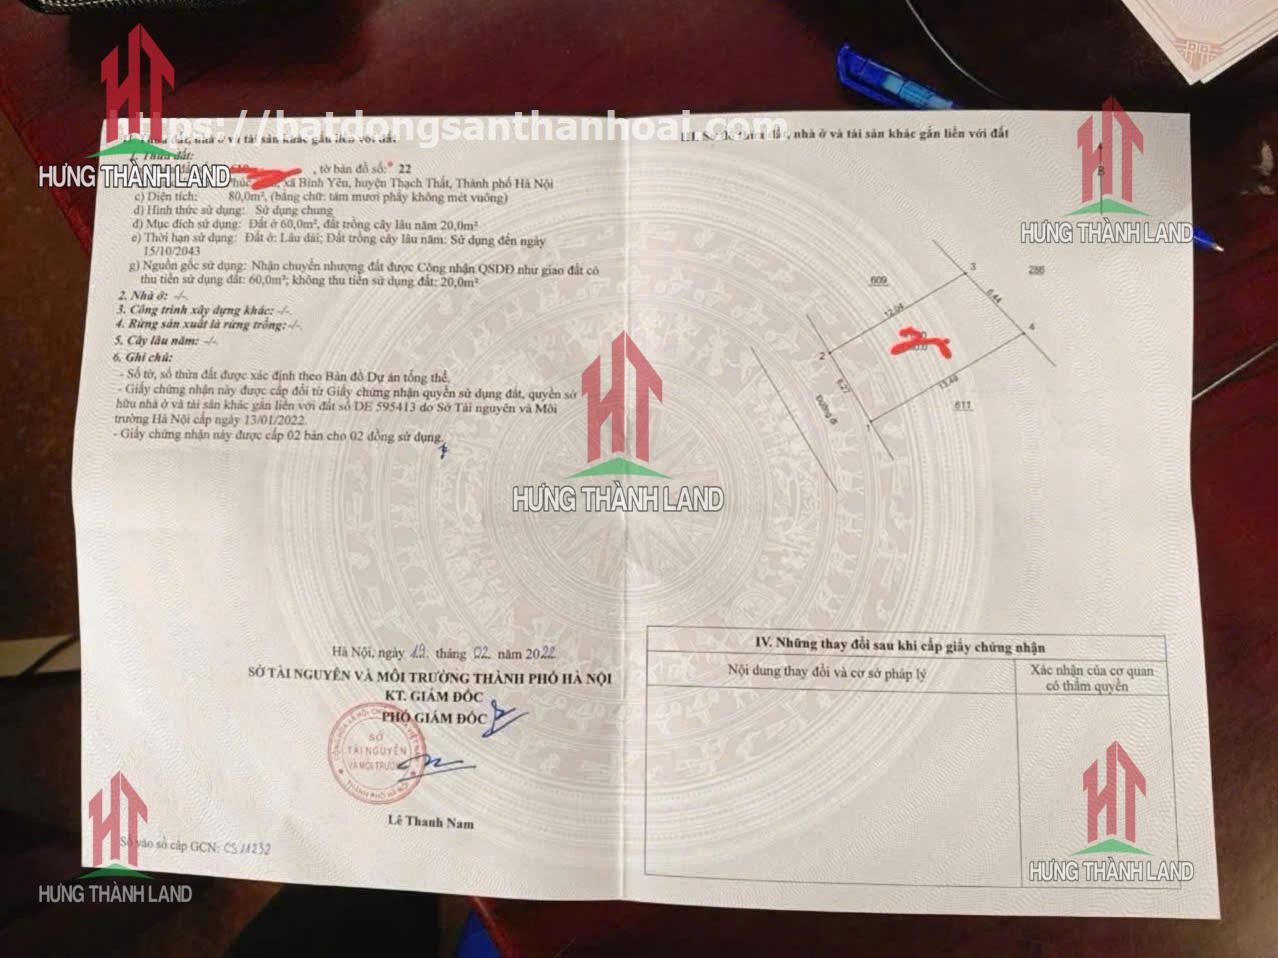 https://batdongsanthanhoai.com
HƯNG THÀNH LAND
II. Thửa đất, nhà ở và tài sản khác gắn liền với đất
1. Thửa đất:
, tờ bản đồ số: 22
xã Bình Yên, huyện Thạch Thất, Thành phố Hà Nội
c) Diện tích: 80,0m², (bằng chữ: tám mươi phẩy không mét vuông)
d) Hình thức sử dụng: Sử dụng chung
đ) Mục đích sử dụng: Đất ở 60,0m², đất trồng cây lâu năm 20,0m²
e) Thời hạn sử dụng: Đất ở: Lâu dài; Đất trồng cây lâu năm: Sử dụng đến ngày
15/10/2043
g) Nguồn gốc sử dụng: Nhận chuyển nhượng đất được Công nhận QSDĐ như giao đất có
thu tiền sử dụng đất: 60,0m²; không thu tiền sử dụng đất: 20,0m²
2. Nhà ở: -/-.
3. Công trình xây dựng khác: -/-.
4. Rừng sản xuất là rừng trồng: -/-.
5. Cây lâu năm: -/-.
6. Ghi chú:
- Số tờ, số thửa đất được xác định theo Bản đồ Dự án tổng thể.
- Giấy chứng nhận này được cấp đổi từ Giấy chứng nhận quyền sử dụng đất, quyền sở
hữu nhà ở và tài sản khác gắn liền với đất số DE 595413 do Sở Tài nguyên và Môi
trường Hà Nội cấp ngày 13/01/2022.
- Giấy chứng nhận này được cấp 02 bản cho 02 đồng sử dụng.
HƯNG THÀNH LAND
Hà Nội, ngày 19. tháng 02. năm 2022
SỞ TÀI NGUYÊN VÀ MÔI TRƯỜNG THÀNH PHỐ HÀ NỘI
KT. GIÁM ĐỐC
PHÓ GIÁM ĐỐC
SỞ
TÀI NGUYÊN
VÀ MÔI TRƯỜNG
THÀNH PHỐ HÀ NỘI
Lê Thanh Nam
Số vào sổ cấp GCN: CS11232
HƯNG THÀNH LAND
III. Sơ đồ thửa đất, nhà ở và tài sản khác gắn liền với đất
B
HƯNG THÀNH LAND
3
286
609
6.44
12.04
4
2
13.48
6.27
611
Đường đi
1
IV. Những thay đổi sau khi cấp giấy chứng nhận
Nội dung thay đổi và cơ sở pháp lý
Xác nhận của cơ quan
có thẩm quyền
HƯNG THÀNH LAND